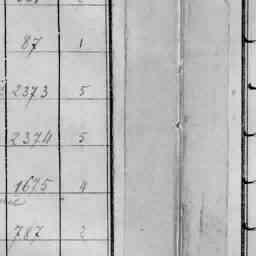 87 1
2373 5
2374 5
1675 4
787 2